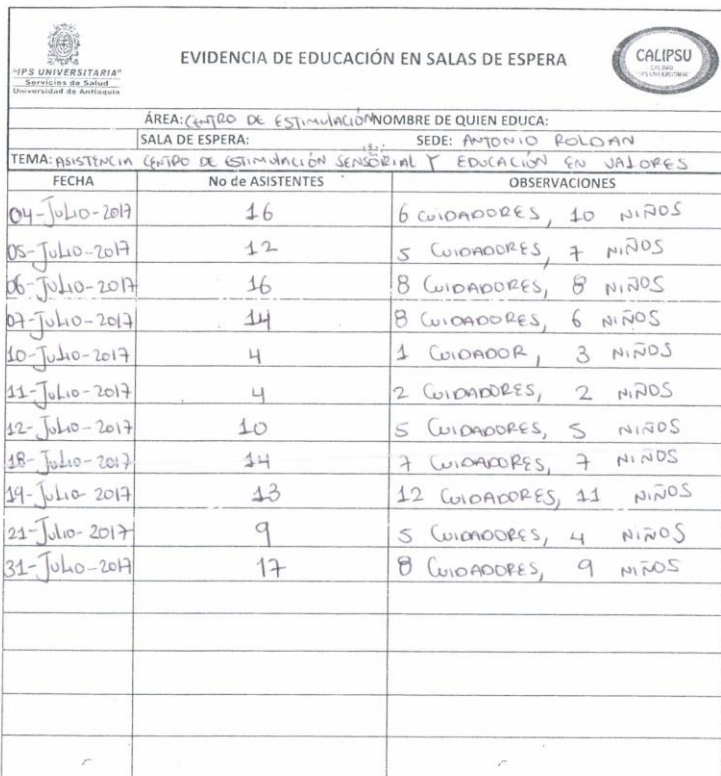 "IPS UNIVERSITARIA"
Servicios de Salud
Universidad de Antioquia
EVIDENCIA DE EDUCACIÓN EN SALAS DE ESPERA
CALIPSU
CALIDAD
"IPS UNIVERSITARIA"
ÁREA: CENTRO DE ESTIMULACIÓN NOMBRE DE QUIEN EDUCA:
SALA DE ESPERA: SEDE: ANTONIO ROLDAN
TEMA: ASISTENCIA CENTRO DE ESTIMULACIÓN SENSORIAL Y EDUCACIÓN EN VALORES
FECHA No de ASISTENTES OBSERVACIONES
04-Julio-2017 16 6 CUIDADORES, 10 NIÑOS
05-Julio-2017 12 5 CUIDADORES, 7 NIÑOS
06-Julio-2017 16 8 CUIDADORES, 8 NIÑOS
07-Julio-2017 14 8 CUIDADORES, 6 NIÑOS
10-Julio-2017 4 1 CUIDADOR, 3 NIÑOS
11-Julio-2017 4 2 CUIDADORES, 2 NIÑOS
12-Julio-2017 10 5 CUIDADORES, 5 NIÑOS
18-Julio-2017 14 7 CUIDADORES, 7 NIÑOS
19-Julio-2017 13 12 CUIDADORES, 11 NIÑOS
21-Julio-2017 9 5 CUIDADORES, 4 NIÑOS
31-Julio-2017 17 8 CUIDADORES, 9 NIÑOS